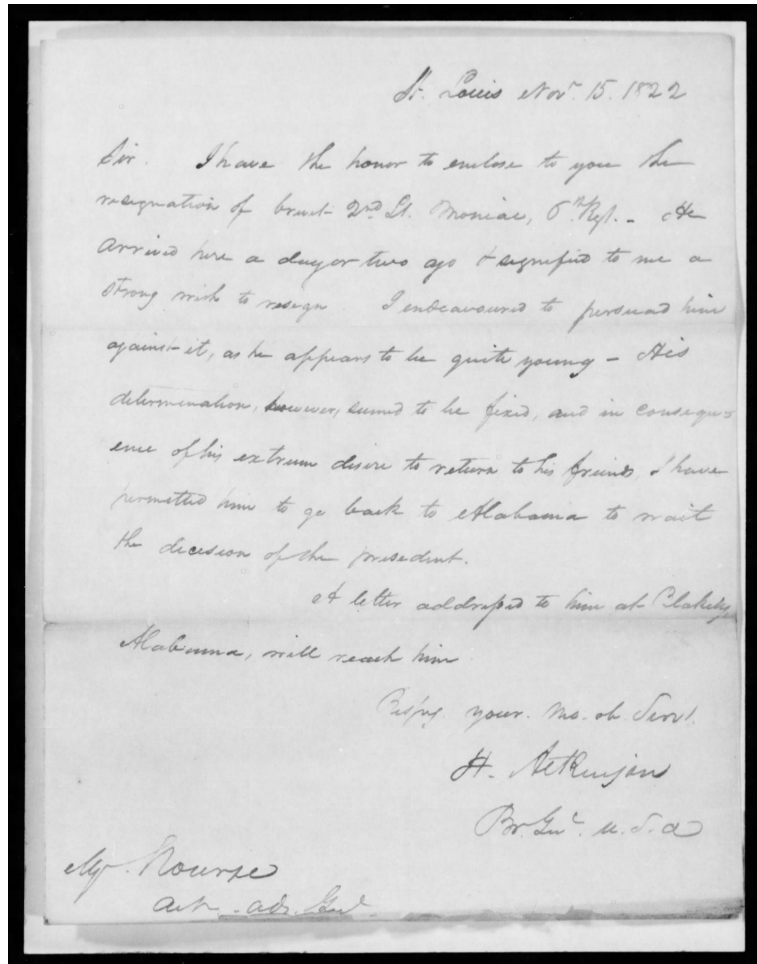 St. Louis Novr. 15. 1822
Sir. I have the honor to enclose to you the
resignation of brevt 2nd Lt. Moniac, 6th Regt. - He
arrived here a day or two ago & signified to me a
strong wish to resign I endeavoured to persuad him
against it, as he appears to be quite young - His
determination, however, seemed to be fixed, and in consequ-
ence of his extreem desire to return to his friends, I have
permitted him to go back to Alabama to wait
the decision of the president.
A letter addressed to him at Blakely
Alabama, will reach him
Respy. your. Mo. ob. Servt.
H. Atkinson
Br. Genl. U.S.A
Maj. Nourse
Act. adj. Genl.